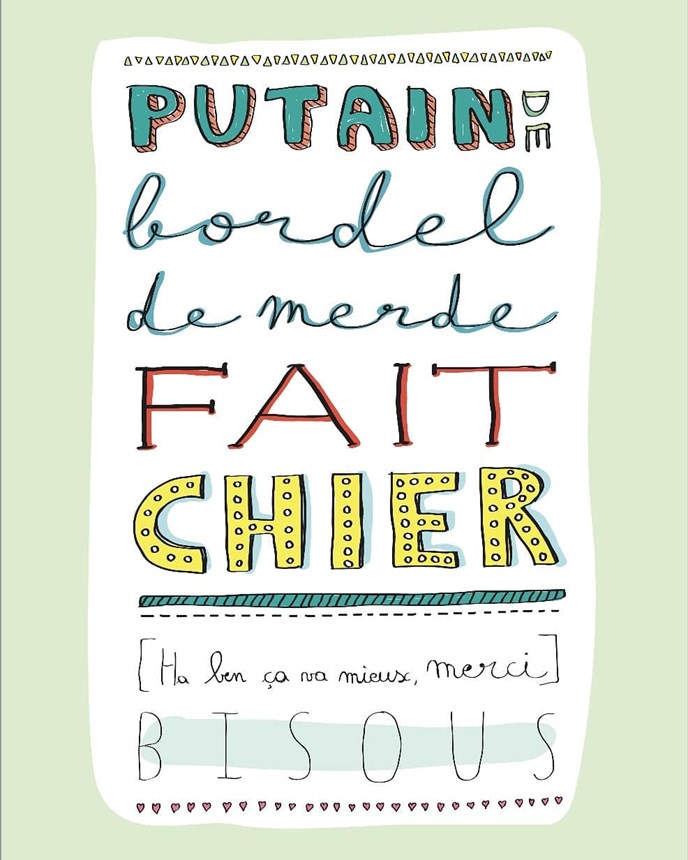 PUTAIN DE
bordel
de merde
FAIT
CHIER
[Ha ben ça va mieux, merci]
BISOUS